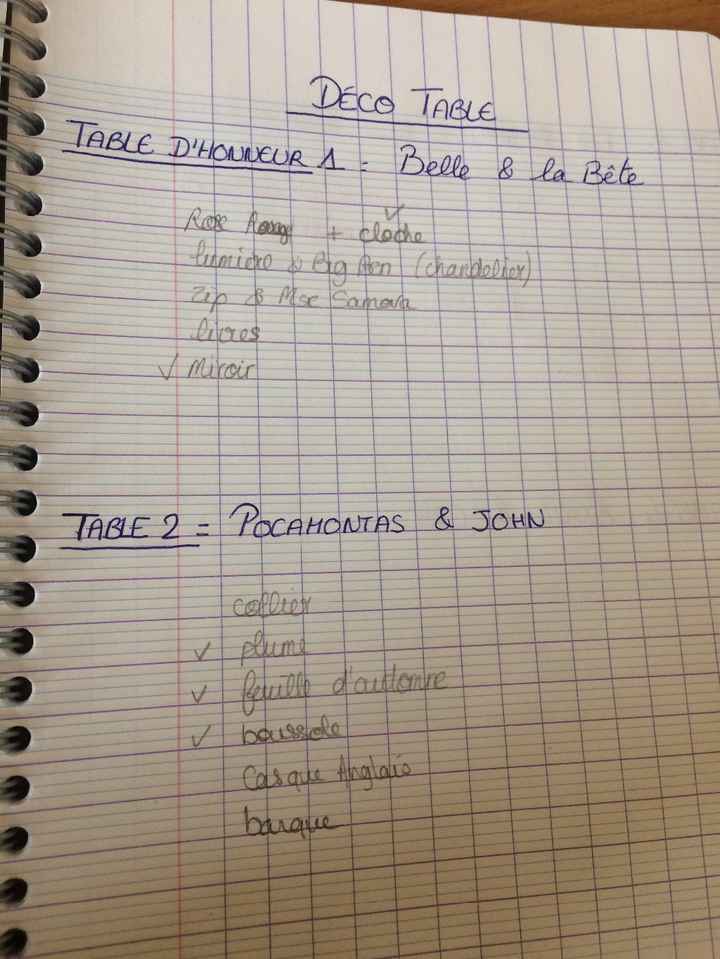 DÉCO TABLE
TABLE D'HONNEUR 1 = Belle & la Bête
Rose Rouge + cloche ✓
lumière & Big Ben (chandelier)
Zip & Mse Samovar
livres
✓ Miroir
TABLE 2 = POCAHONTAS & JOHN
collier
✓ plume
✓ feuille d'automne
✓ boussole
Casque Anglais
barque